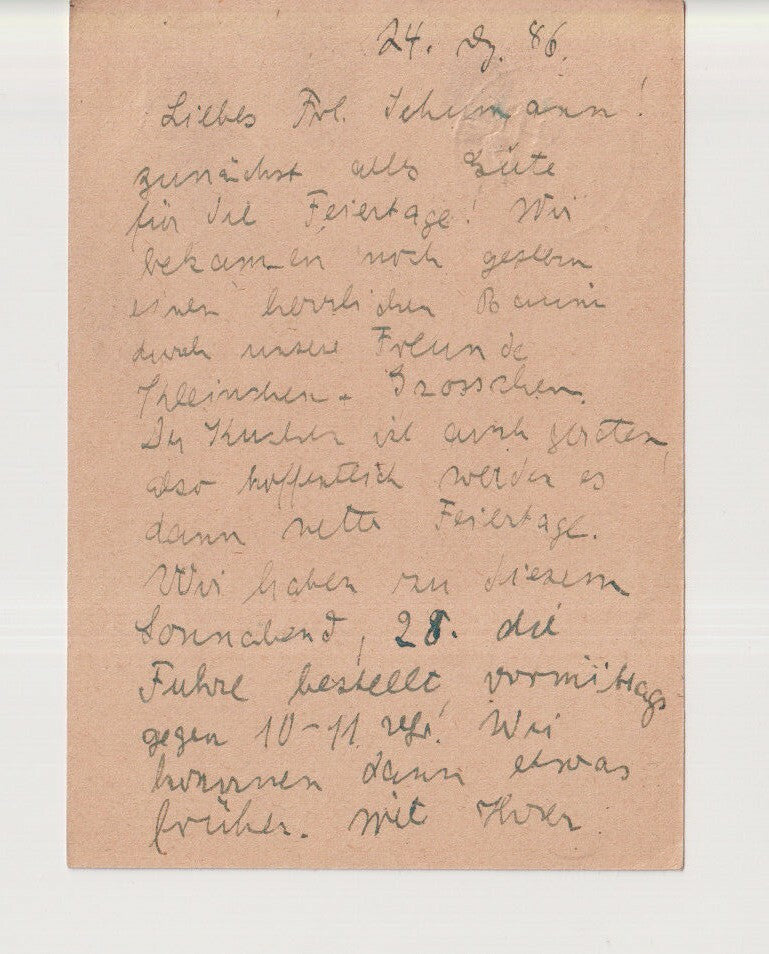 24. Dez. 86.
Liebes Frl. Schumann!
zunächst alles Gute
für die Feiertage! Wir
bekamen noch gestern
einen herrlichen Baum
durch unsere Freunde
Kleinchen - Grosschen.
Der Kuchen ist auch geraten,
also hoffentlich werden es
dann nette Feiertage.
Wir haben zu diesem
Sonnabend, 28. die
Fuhre bestellt, vormittags
gegen 10-11 Uhr! Wir
kommen dann etwas
früher. Mit